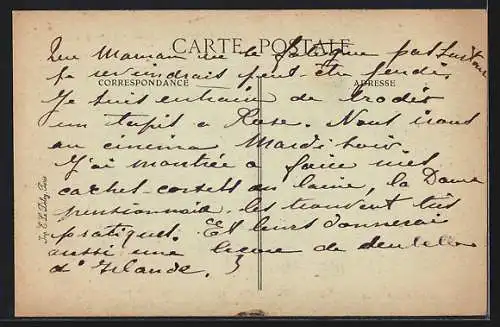 CARTE POSTALE
CORRESPONDANCE
ADRESSE
Que Maman ne se fatigue pas surtout
Je reviendrais peut-être jeudi.
Je suis entrain de broder
un tapis a Rose. Nous irons
au cinema Mardi soir.
J'ai montrée a faire mes
cachet-corsets en laine, la Dame
pensionnaire. les trouvent très
pratiques. Et leurs donnerai
aussi une de dentelle
d'Irlande.
Imp. E. Le Deley, Paris